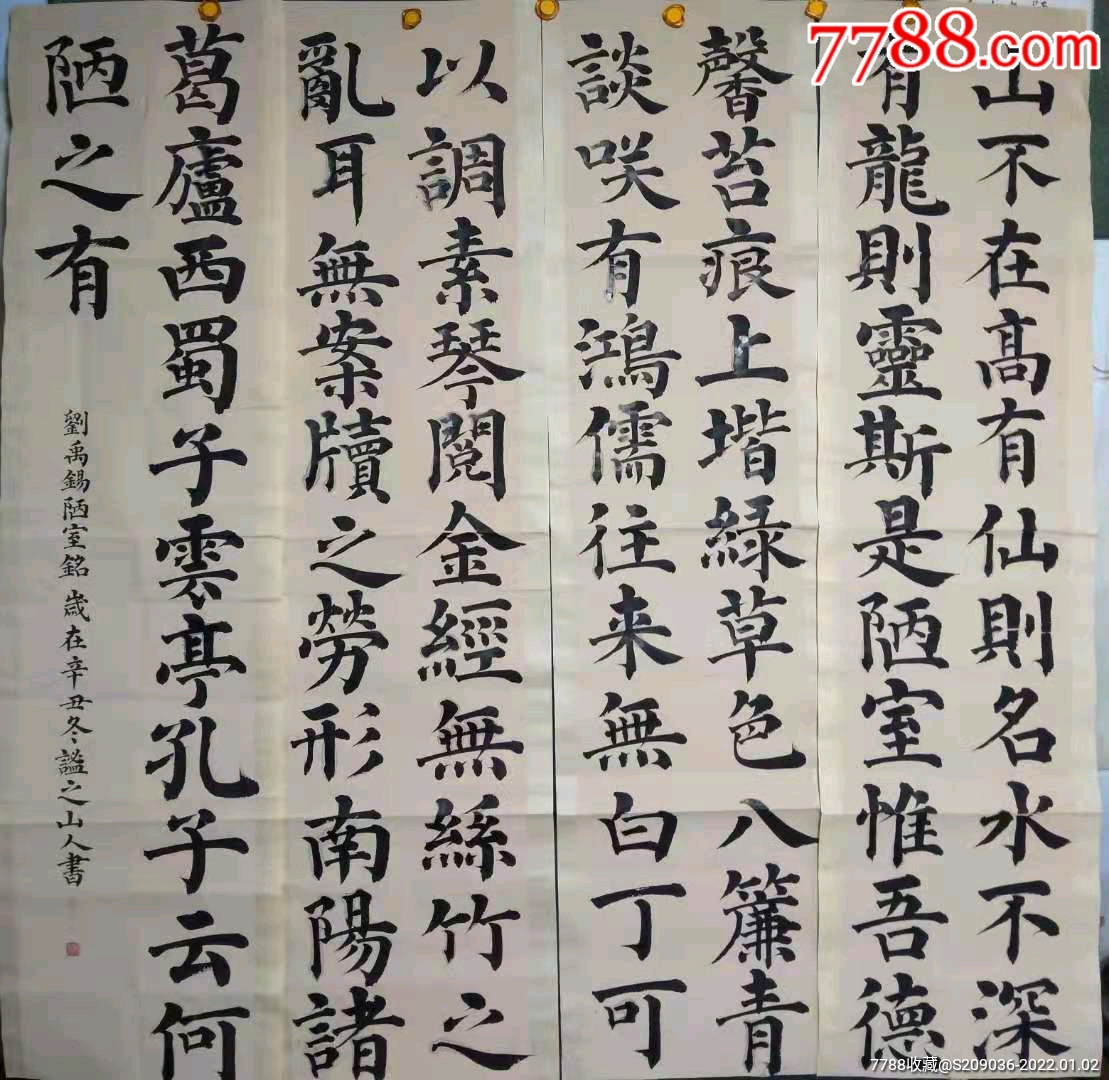 7788.com
山不在高有仙則名水不深
有龍則靈斯是陋室惟吾德
馨苔痕上堦緑草色入簾青
談咲有鴻儒往来無白丁可
以調素琴閱金經無絲竹之
亂耳無案牘之勞形南陽諸
葛廬西蜀子雲亭孔子云何
陋之有
劉禹錫陋室銘 歲在辛丑冬謐之山人書
7788收藏@S209036-2022.01.02